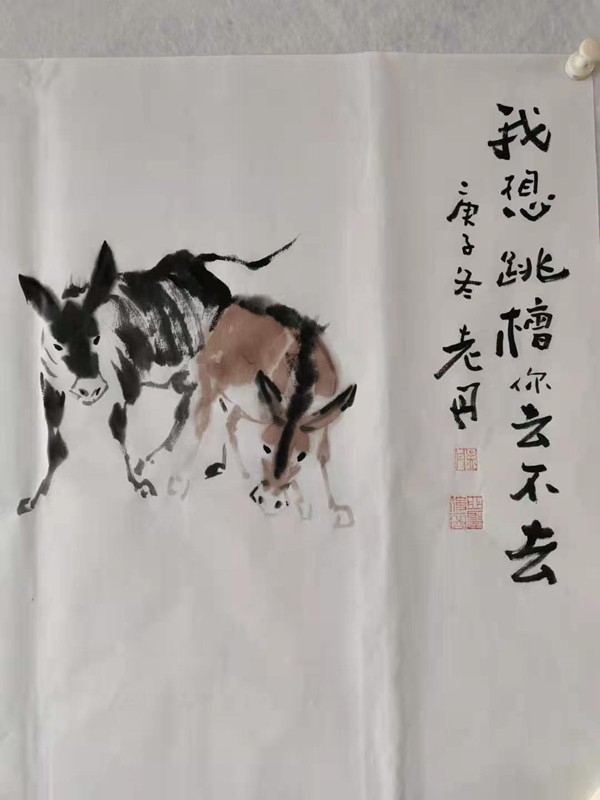 我想跳槽你去不去
庚子冬 老丹